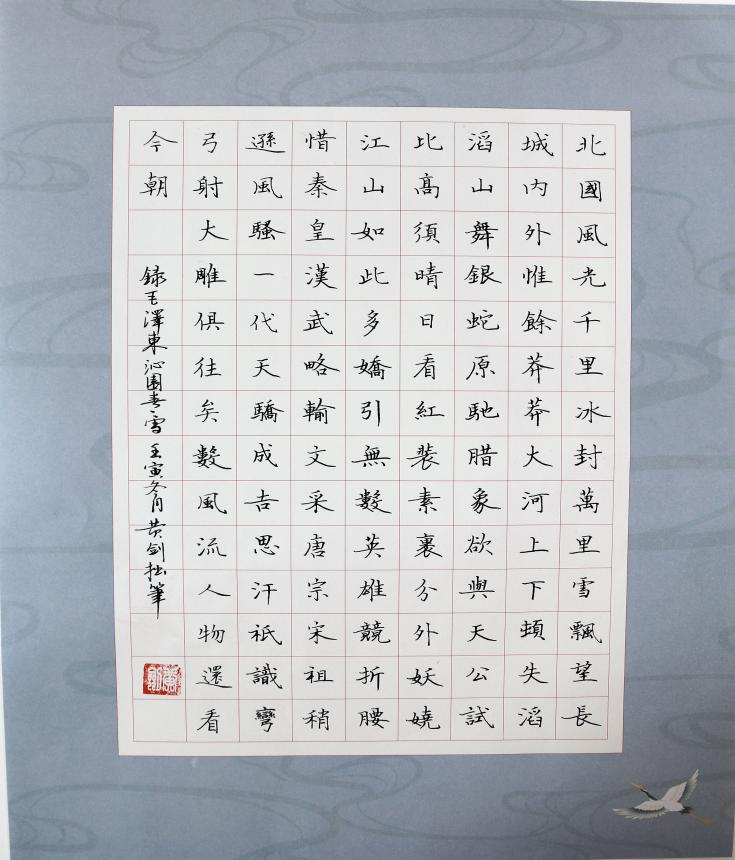 北國風光千里冰封萬里雪飄望長
城內外惟餘莽莽大河上下頓失滔
滔山舞銀蛇原馳腊象欲與天公試
比高須晴日看紅裝素裹分外妖嬈
江山如此多嬌引無數英雄競折腰
惜秦皇漢武略輸文采唐宗宋祖稍
遜風騷一代天驕成吉思汗祇識彎
弓射大雕俱往矣數風流人物還看
今朝
録毛澤東沁園春雪壬寅冬月黄劍拙筆